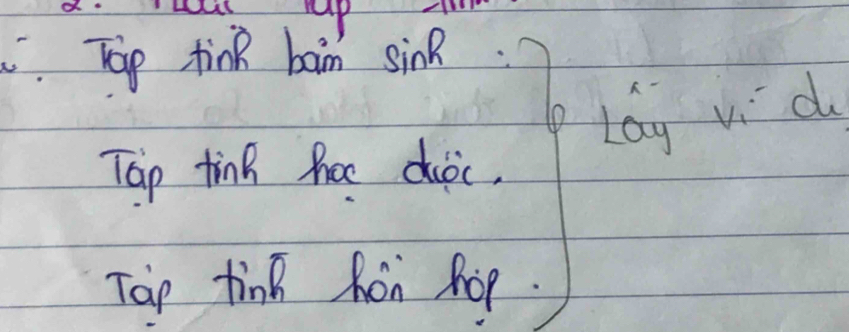 2. Loại tập tính
Tập tính bẩm sinh :
Lấy ví dụ
Tập tính học được.
Tập tính hỗn hợp.